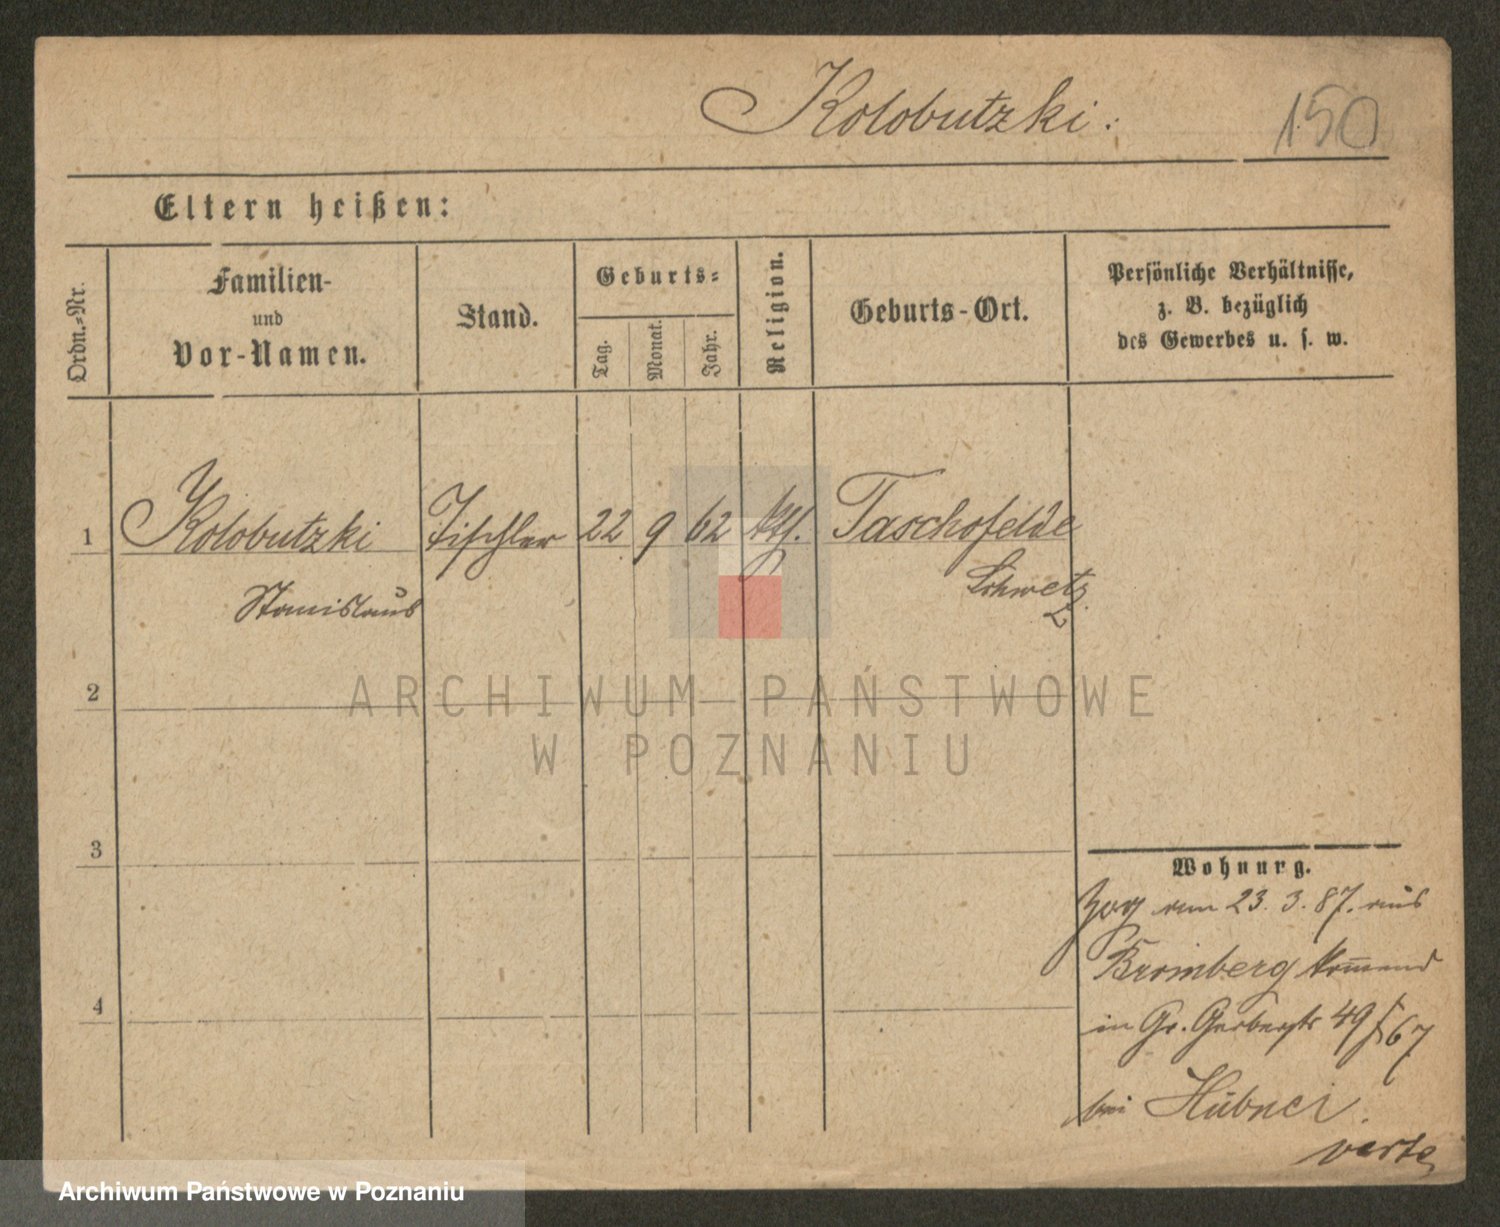 Kolobutzki.
150
Eltern heißen:
Ordn.-Nr.
Familien-
und
Vor-Namen.
Stand.
Geburts-
Tag.
Monat.
Jahr.
Religion.
Geburts-Ort.
Persönliche Verhältnisse,
z. B. bezüglich
des Gewerbes u. s. w.
1
Kolobutzki
Tischler
22
9
62
kth.
Taschofelde
Stanislaus
Schwetz
2
3
4
Wohnung.
Zog am 23. 3. 87. aus
Bromberg kommend
in Gr. Gerberstr 49
67
bei Hübner.
verte
ARCHIWUM PAŃSTWOWE
W POZNANIU
Archiwum Państwowe w Poznaniu